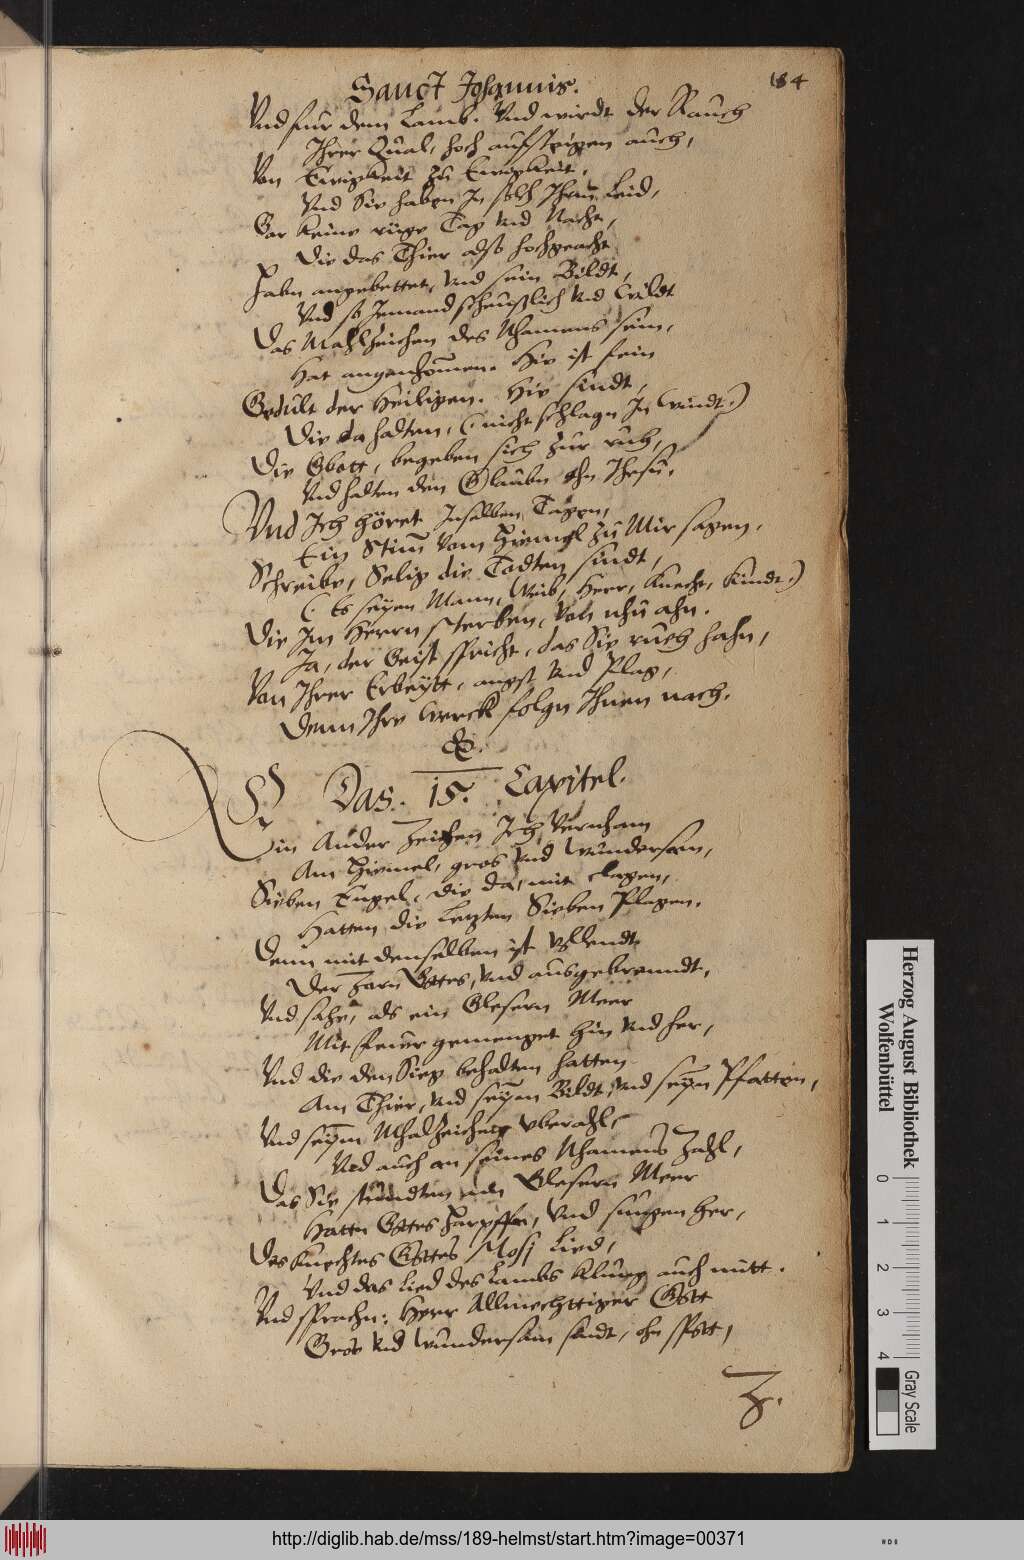 Sanct Johannis.
184
Vnd fur dem Lamb. Vnd wirdt der Rauch
Ihrer Qual, hoch aufsteigen auch,
Von Ewigkeit zu Ewigkeit.
Vnd Sie haben In solch Ihrm Leid,
Gar keine ruge Tag vnd Nacht,
Die das Thier also hochgeacht
Habn angebettet, vnd sein Bildt,
Vnd so Jemand scheuslich vnd Wildt
Das Mahlzeichen des Nhamens sein,
Hat angenhomen. Hie ist fein
Gedult der Heiligen. Hie sindt,
Die da halten, (: nicht schlagn In Windt:)
Die Gbott, begeben sich zur ruh,
Vnd halten den Glaubn ahn Jhesu.
Vnd Ich höret Inselben Tagen,
Ein Stim vom Himel zu Mir sagen.
Schreibe, Selig die Todten sindt,
(: Es seyen Mann, Weib, Herr, Knecht, Kindt:)
Die Im Herrn sterben, Von nhu ahn.
Ja, der Geist spricht, das Sie ruch hahn,
Von Ihrer Erbeytt, angst vnd Plag,
Denn Ihre Werck folgn Ihnen nach.
&.
Das. 15. Capitel.
Ein Ander Zeichen Ich Vernham
Am Himel, gros vnd wundersam,
Sieben Engel, die da, mit clagen,
Hatten die Letzten Sieben Plagen.
Denn mit denselben ist vollendt
Der Zorn Gottes, vnd ausgebrenndt,
Vnd sahe, als ein Glesern Meer
Mit Feuer gemenget hin vnd her,
Vnd die den Sieg behalten hatten
Am Thier, vnd seym Bildt, vnd seyn Pfatten,
Vnd seym Mhalzeichen vberahl,
Vnd auch an seines Nhamens Zahl,
Das Sie stundten am Glesern Meer
Hattn Gottes Harpffen, Vnd sungen her,
Des Knechtes Gottes Mosj Lied,
Vnd das Lied des Lambs klung auch mitt.
Vnd sprachn: Herr Allmechttiger Gott
Gros vnd wundersam sindt, ohn spott,
Z.
Herzog August Bibliothek
Wolfenbüttel
0 1 2 3 4
Gray Scale
http://diglib.hab.de/mss/189-helmst/start.htm?image=00371